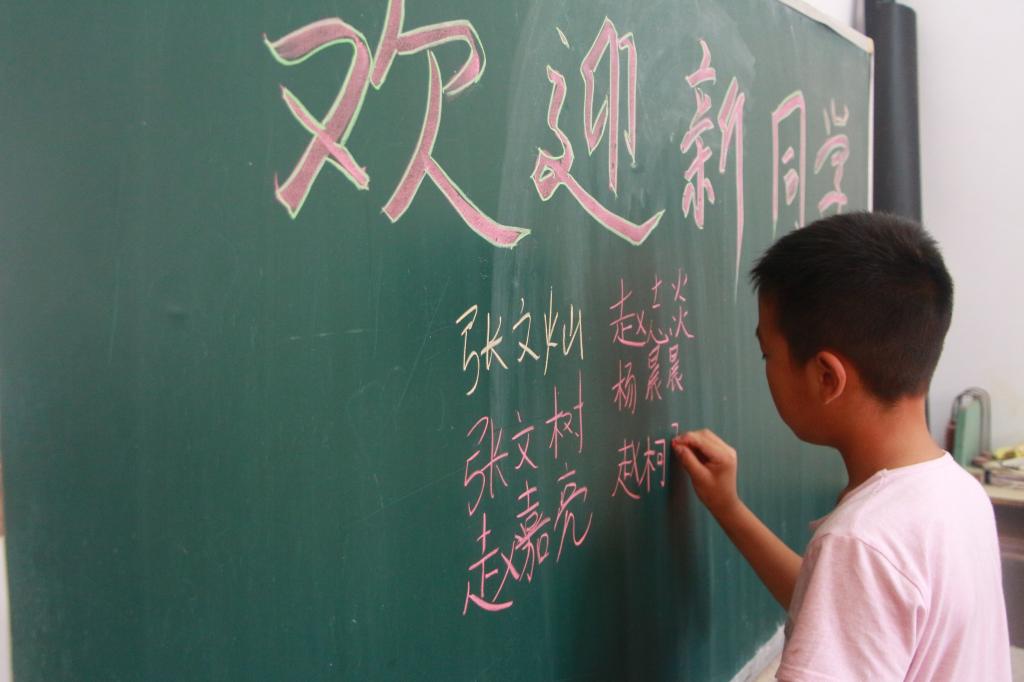 欢迎新同学
张文灿
张文树
赵嘉亮
赵志炎
杨晨晨
赵柯